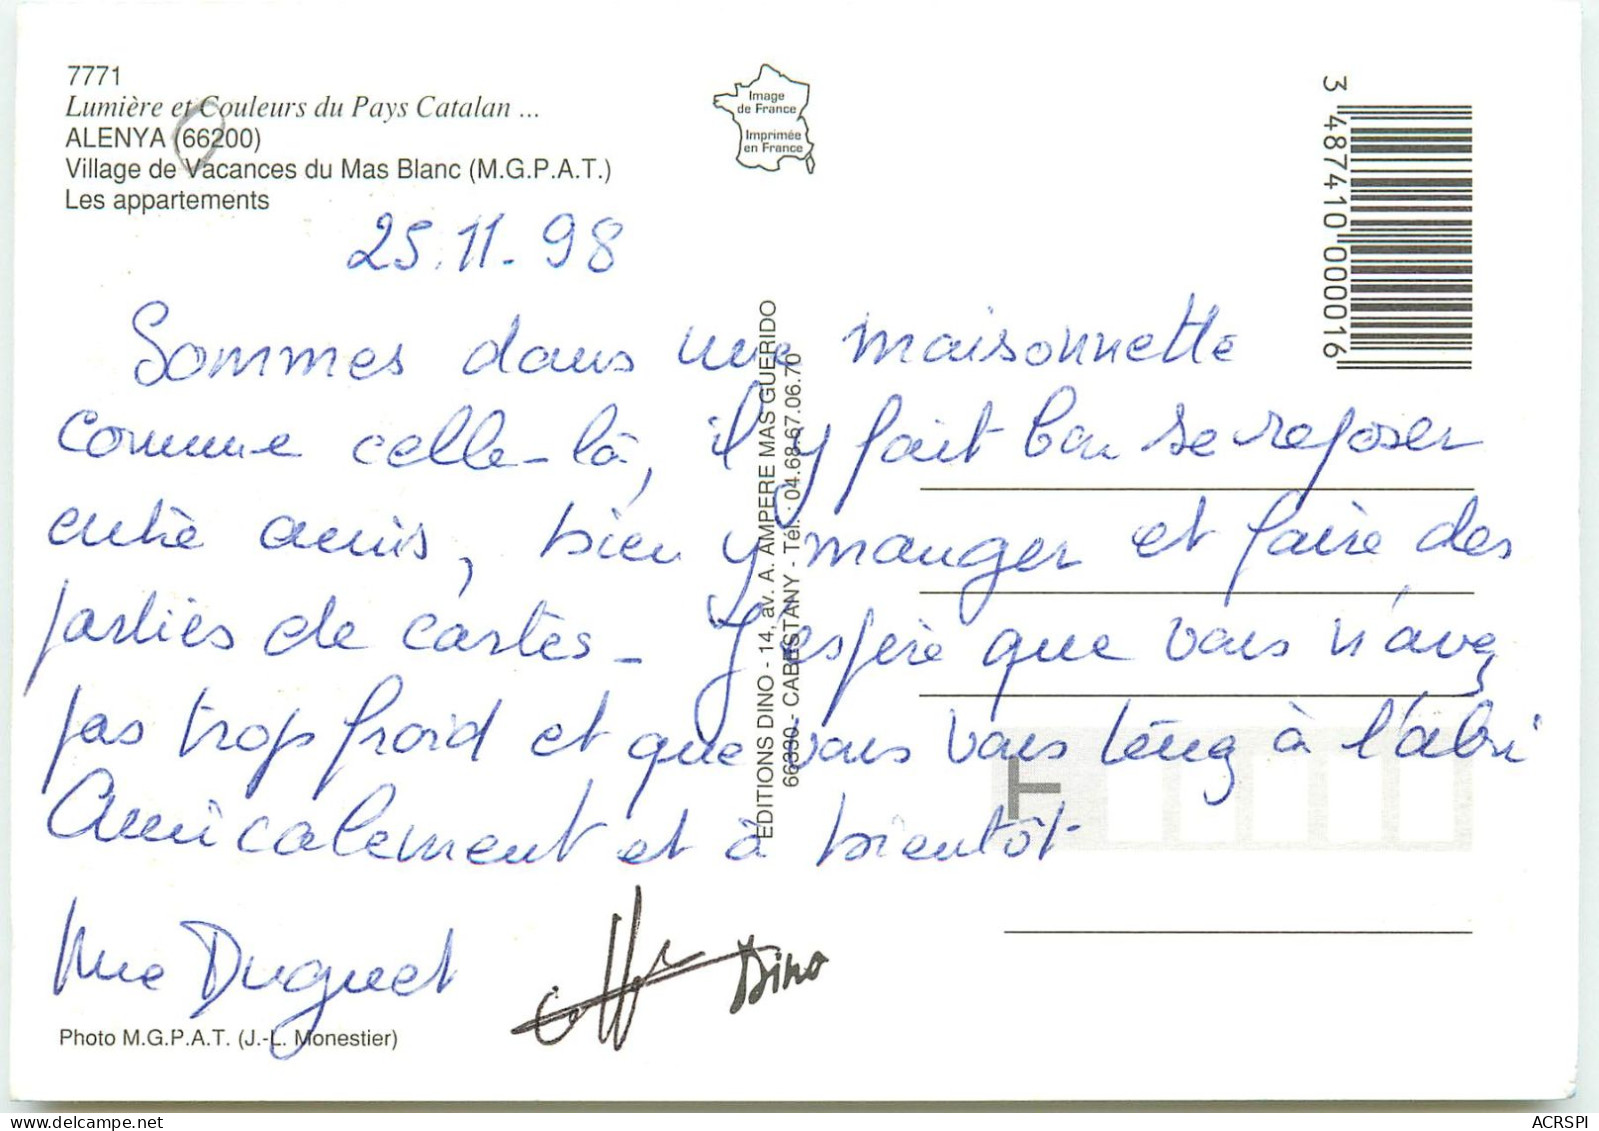 7771
Lumière et Couleurs du Pays Catalan ...
ALENYA (66200)
Village de Vacances du Mas Blanc (M.G.P.A.T.)
Les appartements
Image
de France
Imprimée
en France
3 487410 000016
25.11.98
Sommes dans une maisonnette
comme celle-là, il y fait bon se reposer
entre amis, bien y manger et faire des
parties de cartes - J'espère que vous n'avez
pas trop froid et que vous vous tenez à l'abri
Amicalement et à bientôt
Mme Duguet
Dino
EDITIONS DINO - 14, av. A. AMPERE MAS GUERIDO
66330 - CABESTANY - Tél. : 04.68.67.06.70
T
Photo M.G.P.A.T. (J.-L. Monestier)
www.delcampe.net
ACRSPI